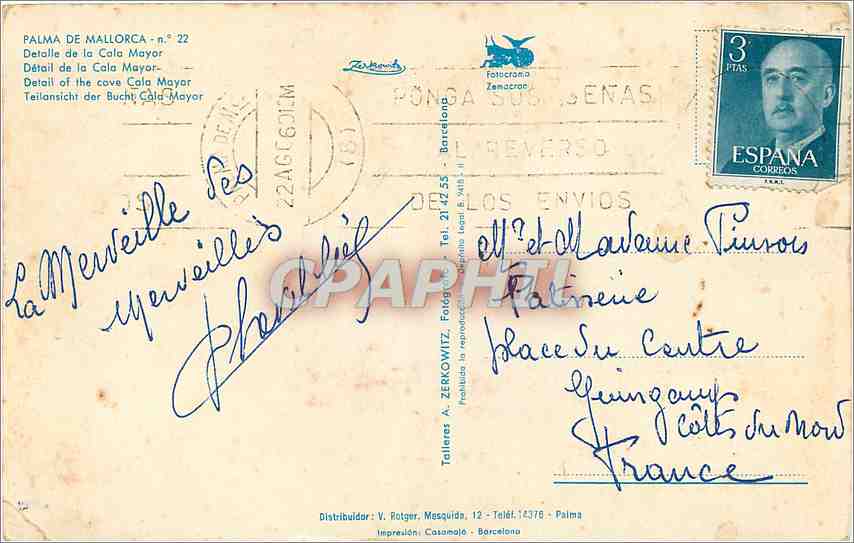 PALMA DE MALLORCA - n.º 22
Detalle de la Cala Mayor
Détail de la Cala Mayor
Detail of the cove Cala Mayor
Teilansicht der Bucht Cala Mayor
Zerkowitz
Fotocroma
Zemacron
3
PTAS
ESPAÑA
CORREOS
F.N.M.T.
22AGO60
PONGA SUS SEÑAS
AL REVERSO
DE LOS ENVIOS
La Merveille des
Merveilles
CPAPHIL
Talleres A. ZERKOWITZ, Fotógrafo - Tel. 21 42 55 - Barcelona
Prohibida la reproducción - Depósito Legal B. 9418 - II
Mr et Madame Pinsois
Patisserie
place du Centre
Guingamp
Côtes du Nord
France
Distribuidor: V. Rotger. Mesquida, 12 - Teléf. 14376 - Palma
Impresión: Casamajó - Barcelona